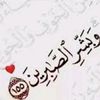 وَبَشِّرِ ٱلصَّٰبِرِينَ ١٥٥